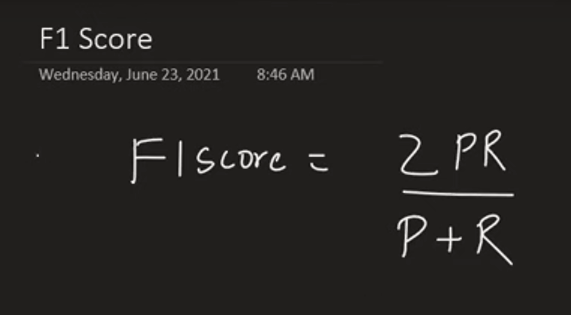 F1 Score
Wednesday, June 23, 2021 8:46 AM
F1 score = 2 PR
P + R